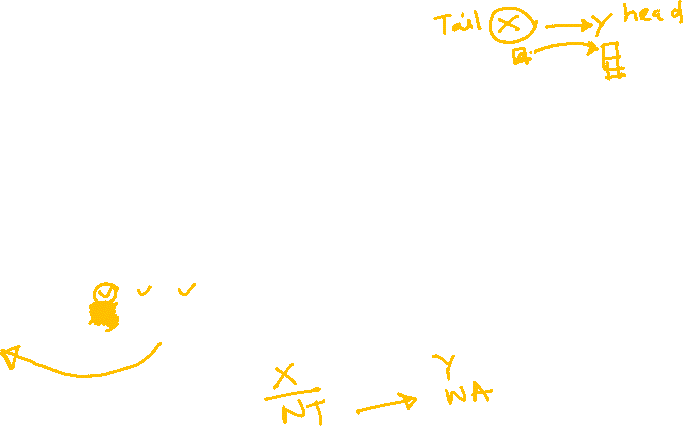 Tail X → Y head
✓ ✓ ✓
X Y
NT → WA